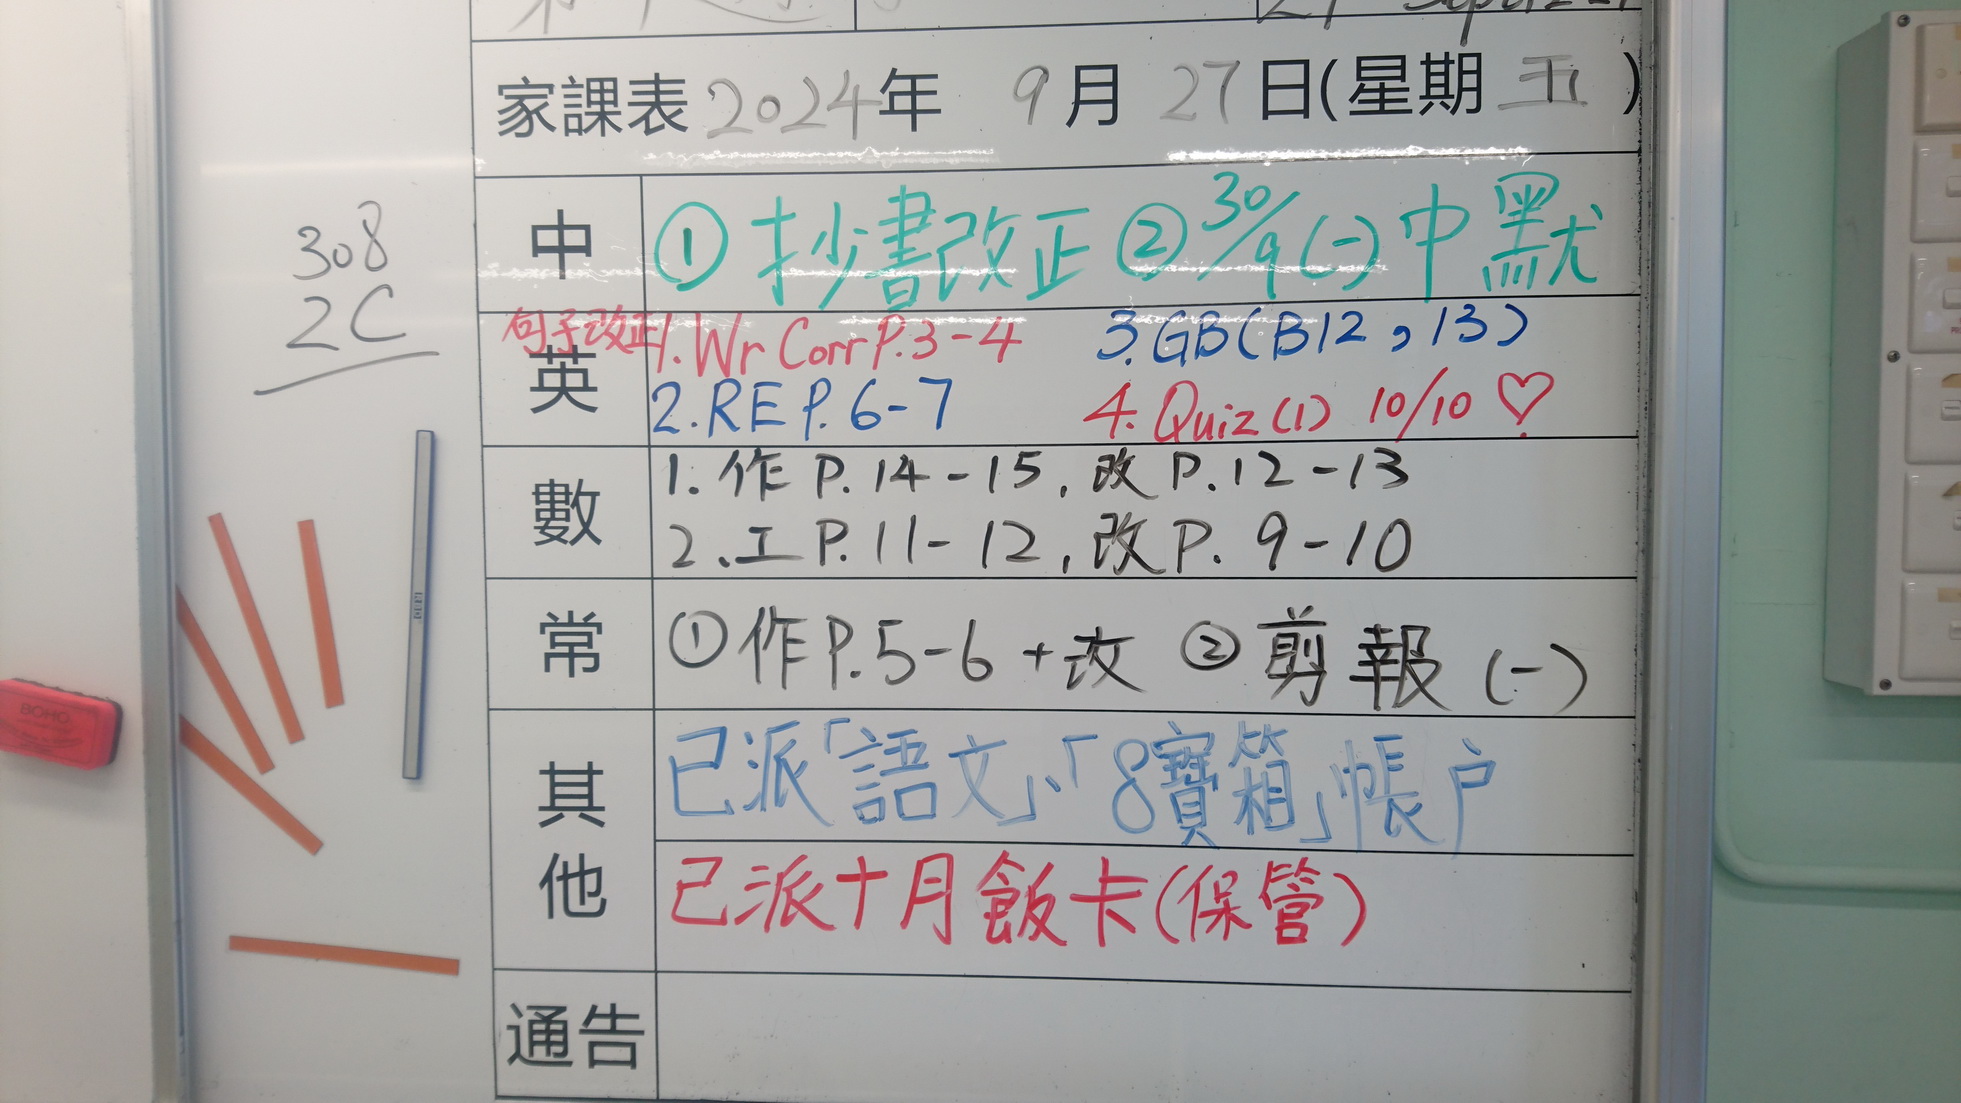 家課表 2024年 9月 27日(星期 五 )
308
2C
中 ① 抄書改正 ② 30/9 (一) 中默
英 句子改正 1. Wr Corr P.3-4 3. GB(B12, 13)
2. RE P. 6-7 4. Quiz (1) 10/10 ♡
數 1. 作 P.14-15, 改 P.12-13
2. 工 P. 11-12, 改 P. 9-10
常 ① 作 P.5-6 + 改 ② 剪報 (一)
其他 已派「語文」、「8寶箱」帳户
已派十月飯卡(保管)
通告
BOHO